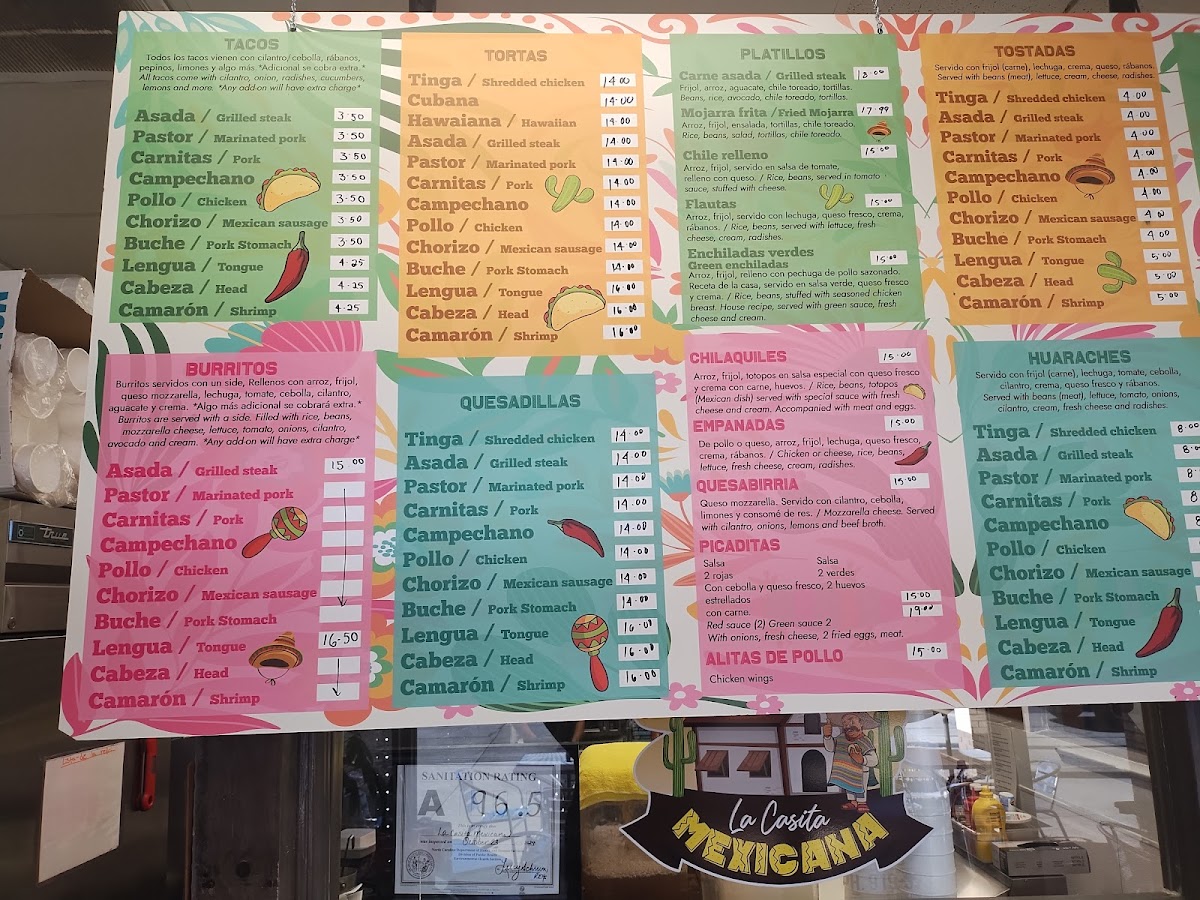 TACOS
Todos los tacos vienen con cilantro/cebolla, rábanos,
pepinos, limones y algo más. *Adicional se cobra extra.*
All tacos come with cilantro, onion, radishes, cucumbers,
lemons and more. *Any add-on will have extra charge*
Asada / Grilled steak 3.50
Pastor / Marinated pork 3.50
Carnitas / Pork 3.50
Campechano 3.50
Pollo / Chicken 3.50
Chorizo / Mexican sausage 3.50
Buche / Pork Stomach 3.50
Lengua / Tongue 4.25
Cabeza / Head 4.25
Camarón / Shrimp 4.25
TORTAS
Tinga / Shredded chicken 14.00
Cubana 14.00
Hawaiana / Hawaiian 14.00
Asada / Grilled steak 14.00
Pastor / Marinated pork 14.00
Carnitas / Pork 14.00
Campechano 14.00
Pollo / Chicken 14.00
Chorizo / Mexican sausage 14.00
Buche / Pork Stomach 14.00
Lengua / Tongue 16.00
Cabeza / Head 16.00
Camarón / Shrimp 16.00
PLATILLOS
Carne asada / Grilled steak 18.00
Frijol, arroz, aguacate, chile toreado, tortillas.
Beans, rice, avocado, chile toreado, tortillas.
Mojarra frita / Fried Mojarra 17.99
Arroz, frijol, ensalada, tortillas, chile toreado,
Rice, beans, salad, tortillas, chile toreado.
Chile relleno 15.00
Arroz, frijol, servido en salsa de tomate,
relleno con queso. / Rice, beans, served in tomato
sauce, stuffed with cheese.
Flautas 15.00
Arroz, frijol, servido con lechuga, queso fresco, crema,
rábanos. / Rice, beans, served with lettuce, fresh
cheese, cream, radishes.
Enchiladas verdes 15.00
Green enchiladas
Arroz, frijol, relleno con pechuga de pollo sazonado.
Receta de la casa, servido en salsa verde, queso fresco
y crema. / Rice, beans, stuffed with seasoned chicken
breast. House recipe, served with green sauce, fresh
cheese and cream.
TOSTADAS
Servido con frijol (carne), lechuga, crema, queso, rábanos.
Served with beans (meat), lettuce, cream, cheese, radishes.
Tinga / Shredded chicken 4.00
Asada / Grilled steak 4.00
Pastor / Marinated pork 4.00
Carnitas / Pork 4.00
Campechano 4.00
Pollo / Chicken 4.00
Chorizo / Mexican sausage 4.00
Buche / Pork Stomach 4.00
Lengua / Tongue 5.00
Cabeza / Head 5.00
Camarón / Shrimp 5.00
BURRITOS
Burritos servidos con un side, Rellenos con arroz, frijol,
queso mozzarella, lechuga, tomate, cebolla, cilantro,
aguacate y crema. *Algo más adicional se cobrará extra.*
Burritos are served with a side. Filled with rice, beans,
mozzarella cheese, lettuce, tomato, onions, cilantro,
avocado and cream. *Any add-on will have extra charge*
Asada / Grilled steak 15.00
Pastor / Marinated pork
Carnitas / Pork
Campechano
Pollo / Chicken
Chorizo / Mexican sausage
Buche / Pork Stomach
Lengua / Tongue 16.50
Cabeza / Head
Camarón / Shrimp
QUESADILLAS
Tinga / Shredded chicken 14.00
Asada / Grilled steak 14.00
Pastor / Marinated pork 14.00
Carnitas / Pork 14.00
Campechano 14.00
Pollo / Chicken 14.00
Chorizo / Mexican sausage 14.00
Buche / Pork Stomach 14.00
Lengua / Tongue 16.00
Cabeza / Head 16.00
Camarón / Shrimp 16.00
CHILAQUILES 15.00
Arroz, frijol, totopos en salsa especial con queso fresco
y crema con carne, huevos. / Rice, beans, totopos
(Mexican dish) served with special sauce with fresh
cheese and cream. Accompanied with meat and eggs.
EMPANADAS 15.00
De pollo o queso, arroz, frijol, lechuga, queso fresco,
crema, rábanos. / Chicken or cheese, rice, beans,
lettuce, fresh cheese, cream, radishes.
QUESABIRRIA 15.00
Queso mozzarella. Servido con cilantro, cebolla,
limones y consomé de res. / Mozzarella cheese. Served
with cilantro, onions, lemons and beef broth.
PICADITAS
Salsa Salsa
2 rojas 2 verdes
Con cebolla y queso fresco, 2 huevos
estrellados 15.00
con carne. 19.00
Red sauce (2) Green sauce 2
With onions, fresh cheese, 2 fried eggs, meat.
ALITAS DE POLLO 15.00
Chicken wings
HUARACHES
Servido con frijol (carne), lechuga, tomate, cebolla,
cilantro, crema, queso fresco y rábanos.
Served with beans (meat), lettuce, tomato, onions,
cilantro, cream, fresh cheese and radishes.
Tinga / Shredded chicken 8.00
Asada / Grilled steak 8.
Pastor / Marinated pork 8.
Carnitas / Pork 8
Campechano 8
Pollo / Chicken
Chorizo / Mexican sausage
Buche / Pork Stomach
Lengua / Tongue
Cabeza / Head
Camarón / Shrimp
true
SANITATION RATING
A 96.5
La Casita Mexicana
La Casita
MEXICANA